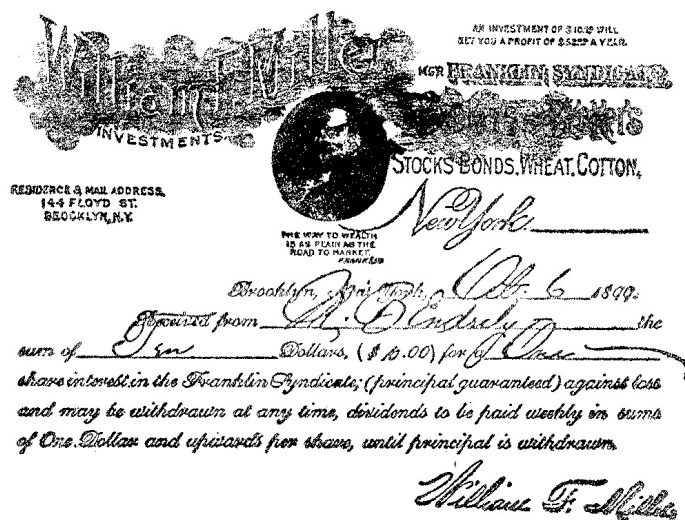 AN INVESTMENT OF $10.00 WILL
NET YOU A PROFIT OF $52.00 A YEAR.
William F. Miller
INVESTMENTS.
MGR FRANKLIN SYNDICATE.
STOCKS BONDS, WHEAT, COTTON,
RESIDENCE & MAIL ADDRESS,
144 FLOYD ST.
BROOKLYN, N.Y.
New York
THE WAY TO WEALTH
IS AS PLAIN AS THE
ROAD TO MARKET.
FRANKLIN
Brooklyn, New York, Oct. 6 1899.
Received from the
sum of Ten Dollars, ($10.00) for One
share interest in the Franklin Syndicate; (principal guaranteed) against loss
and may be withdrawn at any time, dividends to be paid weekly in sums
of One Dollar and upwards per share, until principal is withdrawn.
William F. Miller